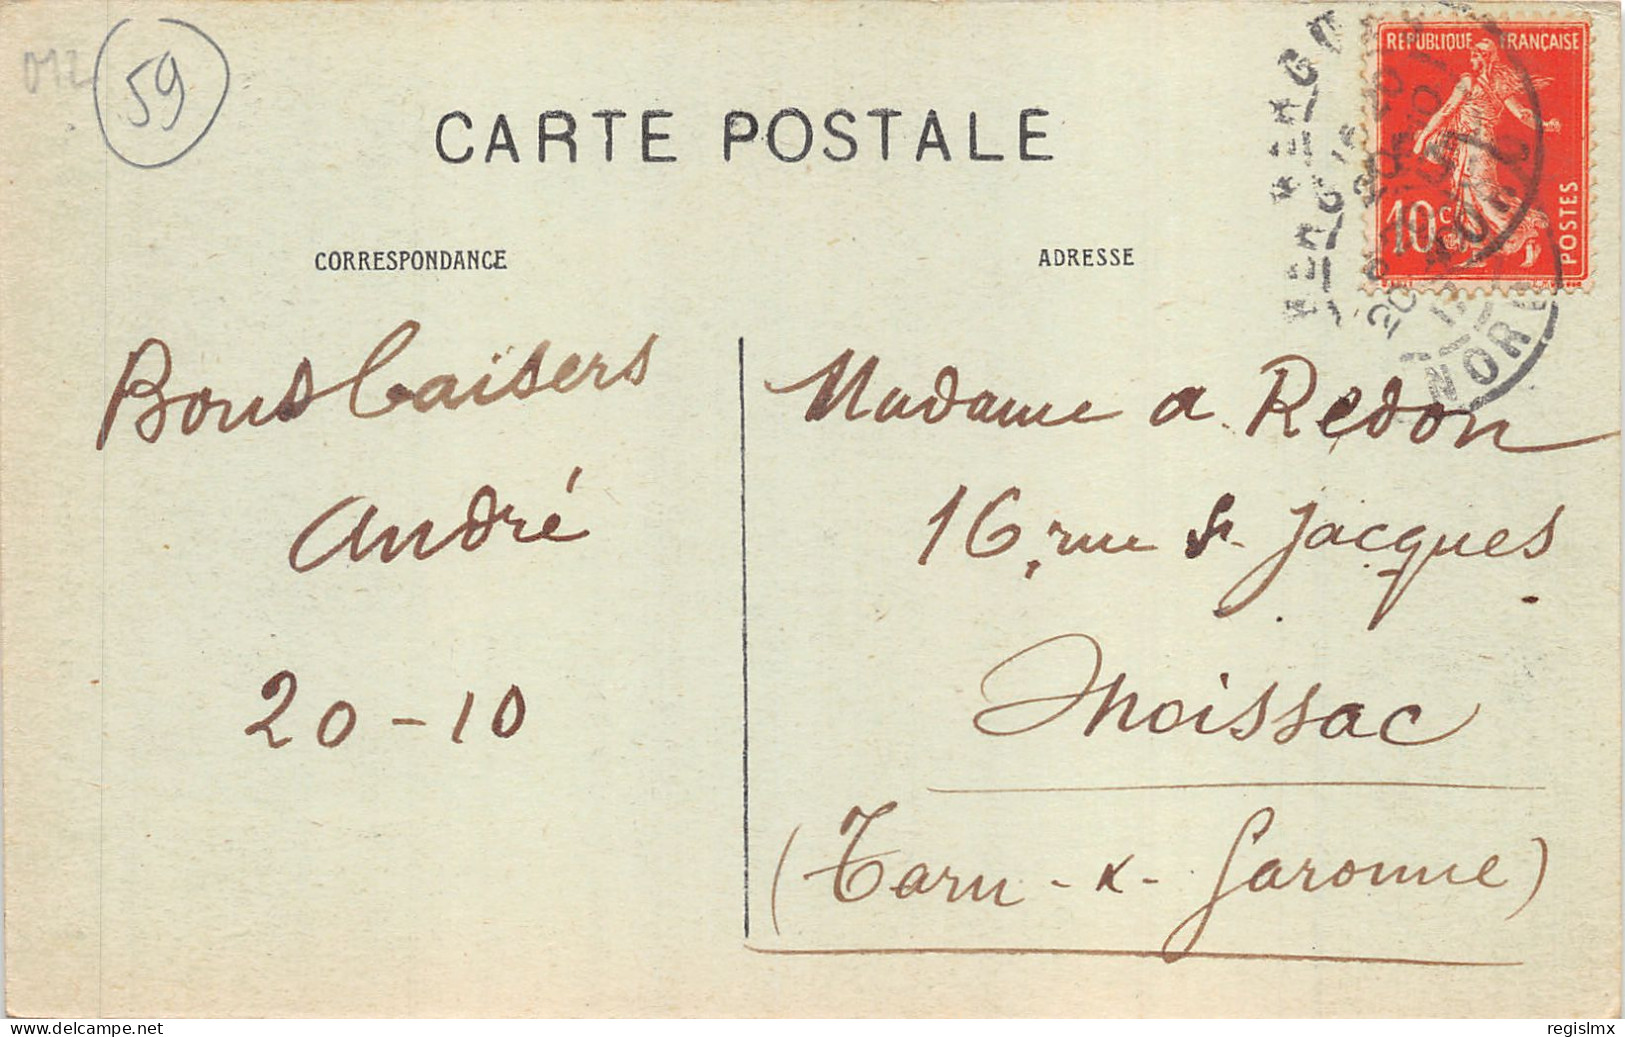 012
59
CARTE POSTALE
REPUBLIQUE FRANÇAISE
10c
POSTES
NORD
NORD
CORRESPONDANCE
ADRESSE
Bons baisers
André
20-10
Madame A Redon
16, rue St Jacques
Moissac
(Tarn-&-Garonne)
delcampe.net
regislmx